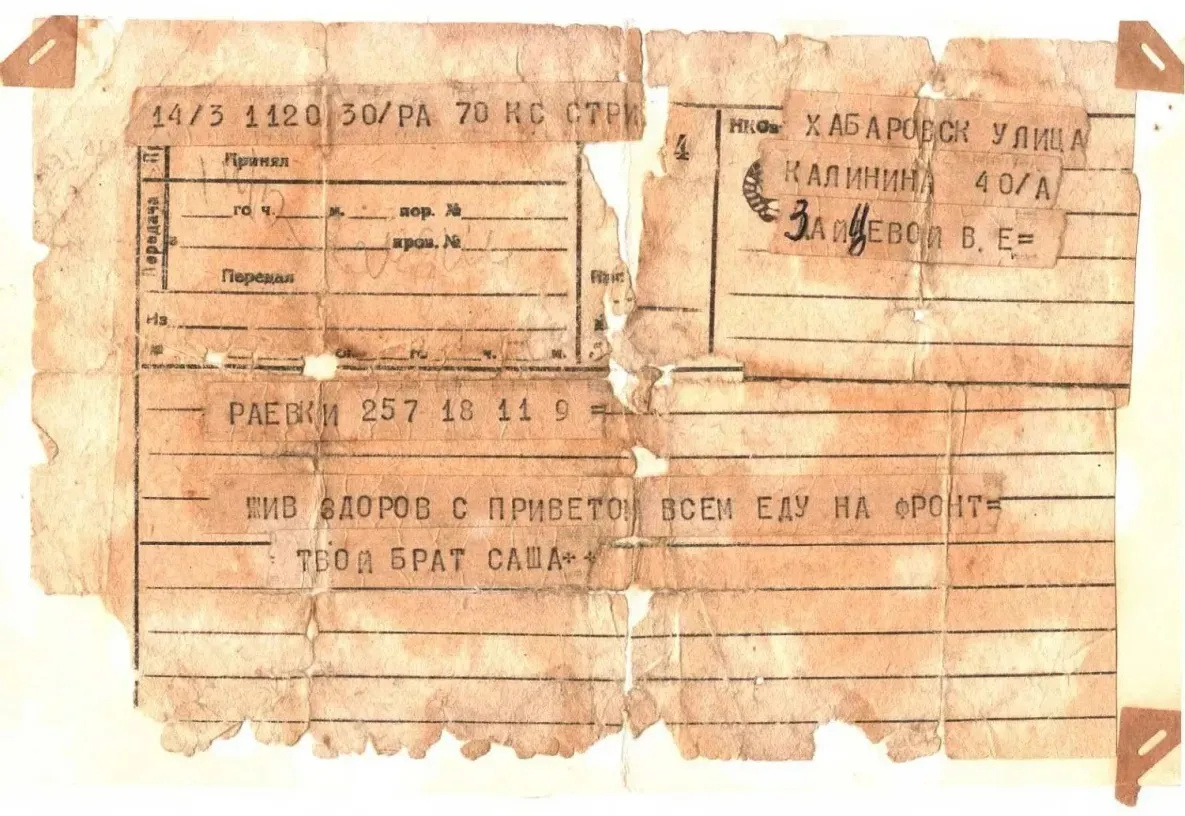 14/3 1120 30/РА 70 КС СТРИ
4
НКСв
ХАБАРОВСК УЛИЦА
КАЛИНИНА 40/А
ЗАЙЦЕВОЙ В. Е=
Передача
Принял
го ч. м. пор. №
пров. №
Передал
Из
ч. м.
РАЕВКИ 257 18 11 9 =
ЖИВ ЗДОРОВ С ПРИВЕТОМ ВСЕМ ЕДУ НА ФРОНТ=
ТВОЙ БРАТ САША++